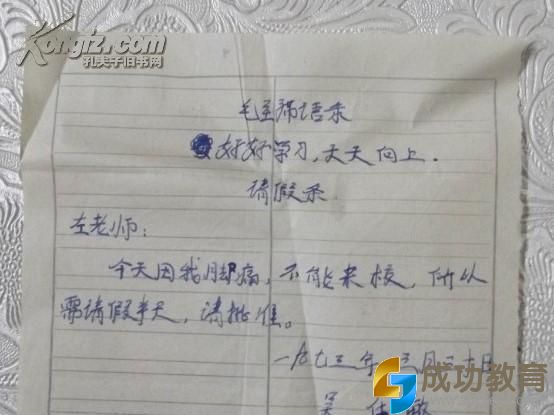 Kongfz.com
孔夫子旧书网
毛主席语录
好好学习,天天向上.
请假条
左老师:
今天因我脚痛,不能来校,所以
需请假半天,请批准。
一九七三年 月二十日
吴
成功教育